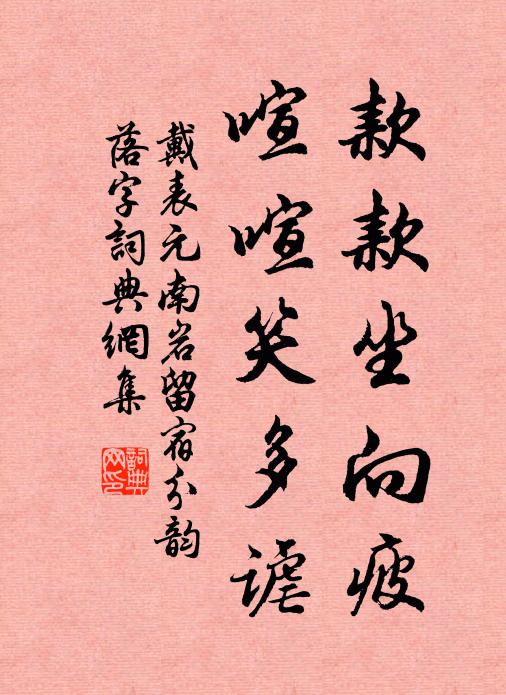 款款坐向疲
喧喧笑多謔
戴表元南岩留宿分韵
落字詞典網集
詞典网印